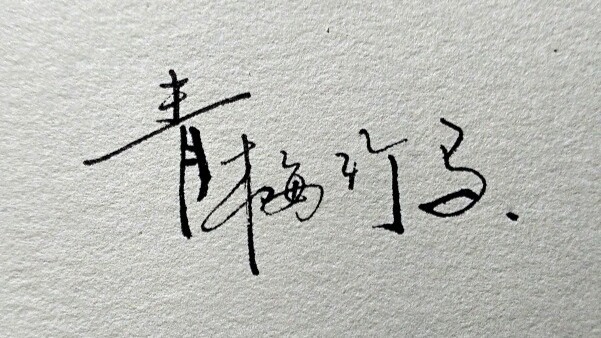 青梅竹马.